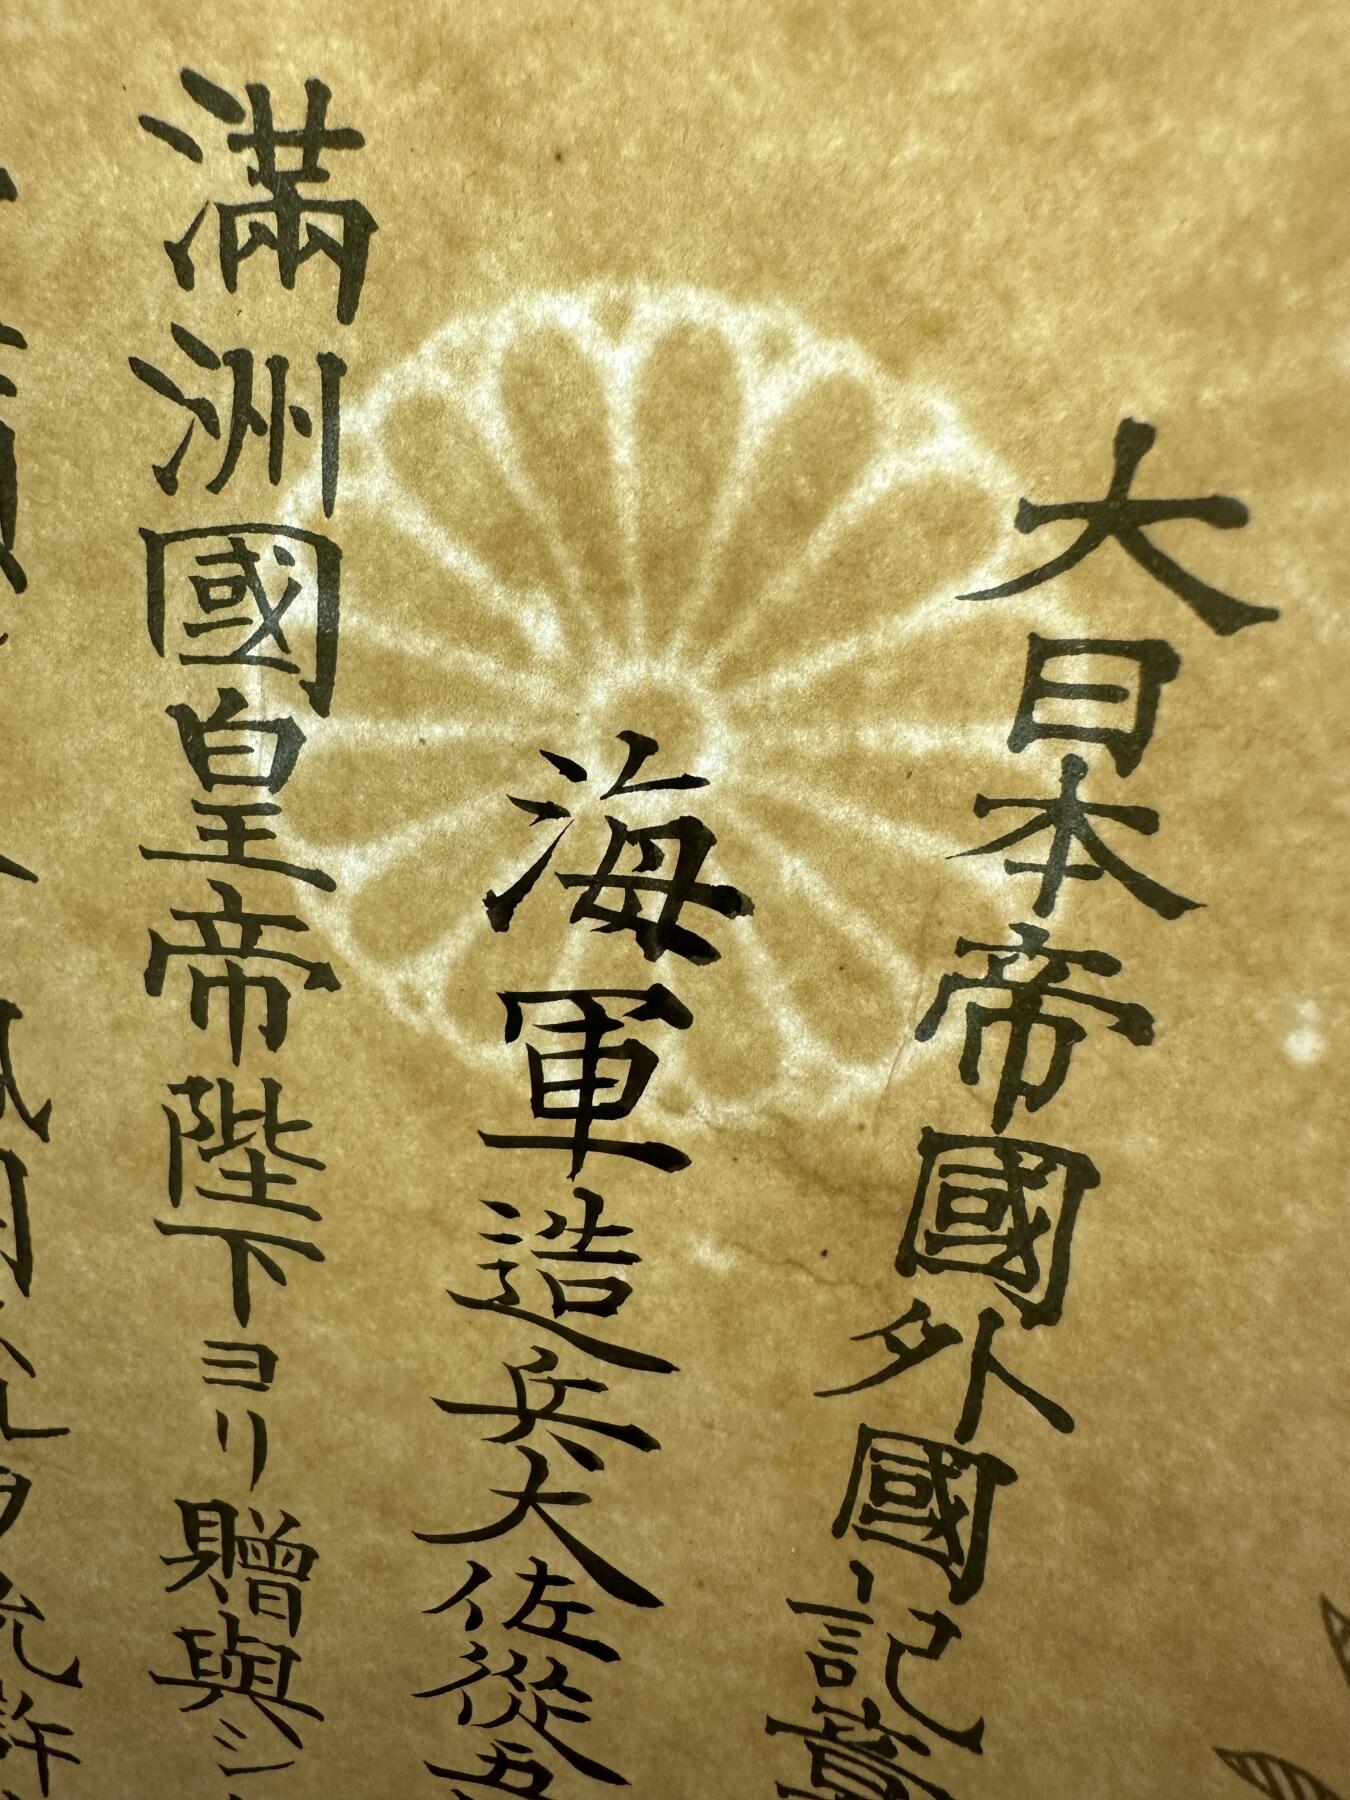 大日本帝國外國記章
海軍造兵大佐從五
滿洲國皇帝陛下ヨリ贈與シ
允許